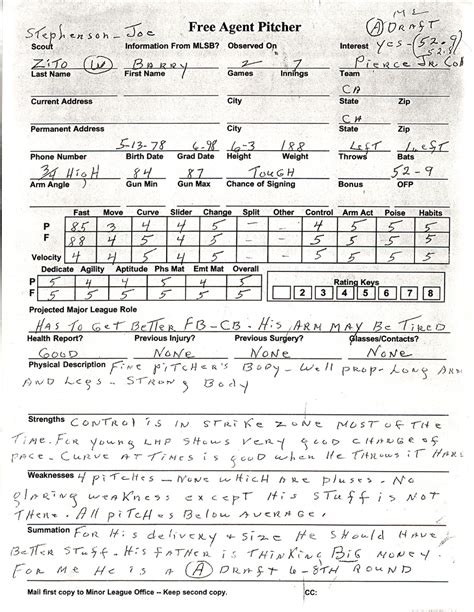 Free Agent Pitcher
M L
(A) DRAFT
Stephenson - Joe
Yes - (52.9)
52.9
Scout Information From MLSB? Observed On Interest
Zito (W) Barry 2 7 Pierce Jr Col
Last Name First Name Games Innings Team
CA
Current Address City State Zip
CA
Permanent Address City State Zip
5-13-78 6-98 6-3 188 Left Left
Phone Number Birth Date Grad Date Height Weight Throws Bats
3/4 High 84 87 Tough 52-9
Arm Angle Gun Min Gun Max Chance of Signing Bonus OFP
Fast Move Curve Slider Change Split Other Control Arm Act Poise Habits
P 85 3 4 4 5 5 5 5 5
F 88 4 5 5 5 5 5 5 5
Velocity 4 4 5 4 5 5 5 5 5
Dedicate Agility Aptitude Phs Mat Emt Mat Overall
P 5 4 4 5 5 5
F 5 5 5 5 5 5
Rating Keys
2 3 4 5 6 7 8
Projected Major League Role
Has To Get Better FB-CB. His Arm May Be Tired
Health Report? Previous Injury? Previous Surgery? Glasses/Contacts?
Good None None None
Physical Description Fine pitcher's Body - Well prop - Long Arm
And Legs - Strong Body
Strengths Control is in strike zone most of the
Time. For young LHP shows very good change of
pace - Curve at times is good when He throws it Hard
Weaknesses 4 pitches - None which are pluses - No
glaring weakness except His stuff is not
There. All pitches Below Average.
Summation For His delivery & size He should Have
Better stuff - His father is thinking Big money.
For me He is a (A) Draft 6-8th Round
Mail first copy to Minor League Office -- Keep second copy. CC: